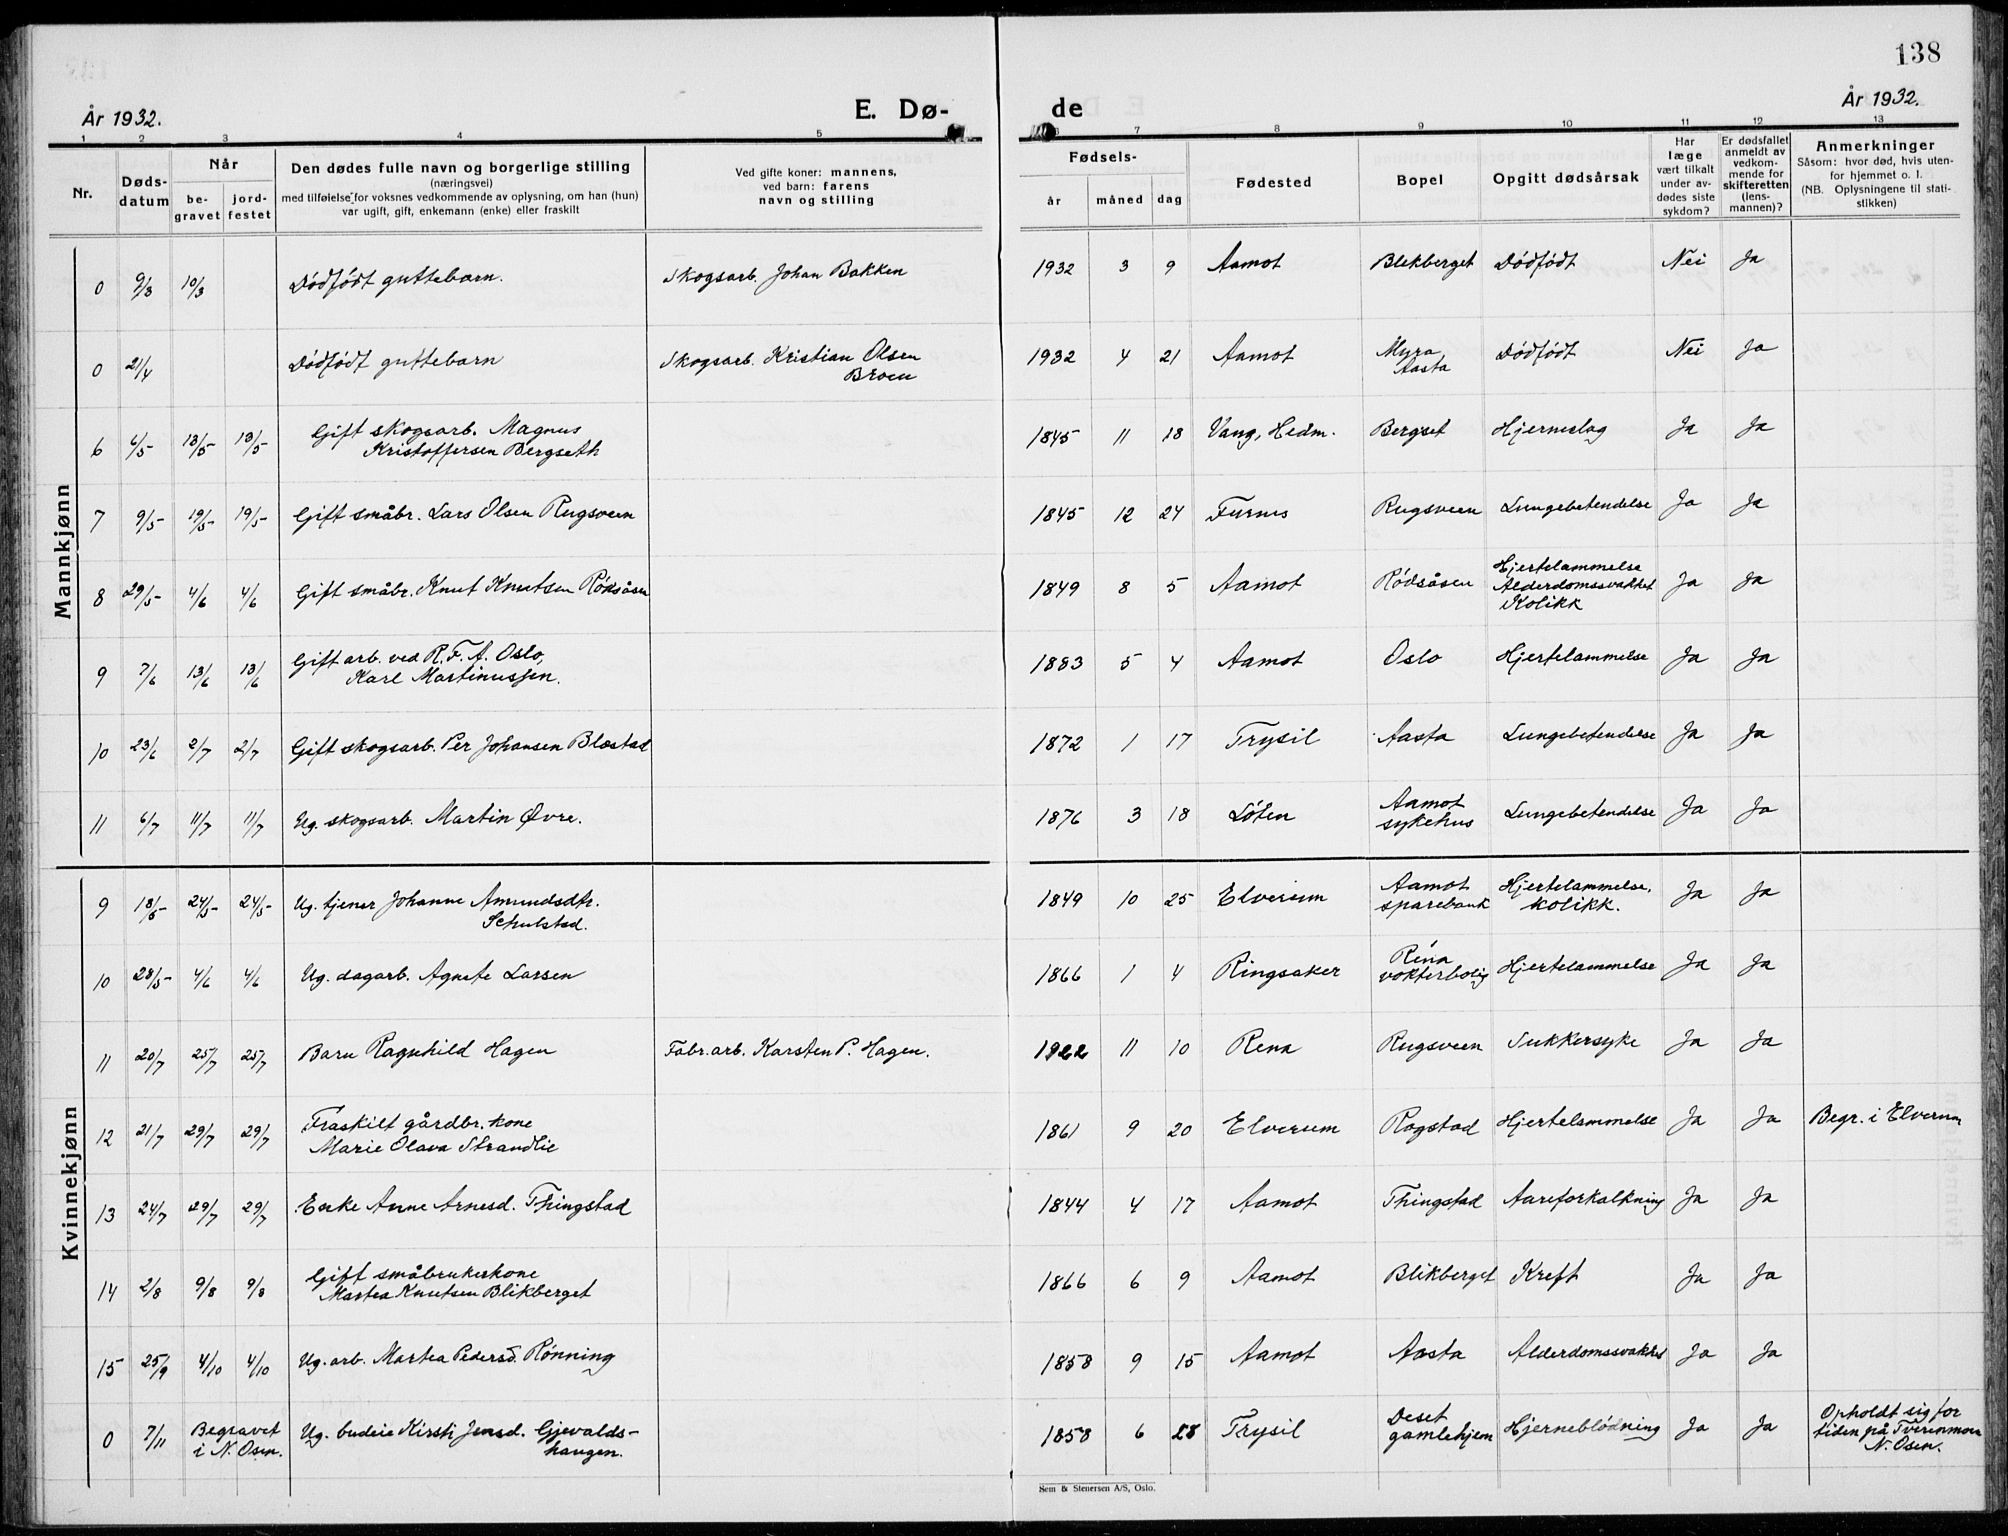 138
År 1932. E. Dø- de År 1932.
1 2 3 4 5 6 7 8 9 10 11 12 13
Nr. Døds-datum Når be-gravet jord-festet Den dødes fulle navn og borgerlige stilling (næringsvei) med tilføielse for voksnes vedkommende av oplysning, om han (hun) var ugift, gift, enkemann (enke) eller fraskilt Ved gifte koner: mannens, ved barn: farens navn og stilling Fødsels- år måned dag Fødested Bopel Opgitt dødsårsak Har læge vært tilkalt under av-dødes siste sykdom? Er dødsfallet anmeldt av vedkom-mende for skifteretten (lens-mannen)? Anmerkninger Såsom: hvor død, hvis uten-for hjemmet o. l. (NB. Oplysningene til stati-stikken)
Mannkjønn
0 9/3 10/3 Dödfödt guttebarn. Skogsarb. Johan Bakken 1932 3 9 Aamot Blekberget Dödfödt Nei Ja
0 21/4 Dödfödt guttebarn Skogsarb. Kristian Olsen Broen 1932 4 21 Aamot Myra Aasta Dödfödt Nei Ja
6 6/5 13/5 13/5 Gift skogsarb. Magnus Kristoffersen Bergseth 1845 11 18 Vang, Hedm. Bergset Hjerneslag Ja Ja
7 9/5 19/5 19/5 Gift småbr. Lars Olsen Rugsveen 1845 12 24 Furnes Rugsveen Lungebetendelse Ja Ja
8 29/5 4/6 4/6 Gift småbr. Knut Knutsen Rödsåsen 1849 8 5 Aamot Rödsåsen Hjertelammelse Alderdomssvakhet Kolikk Ja Ja
9 7/6 13/6 13/6 Gift arb. ved R.F.A. Oslo, Karl Martinussen. 1883 5 4 Aamot Oslo Hjertelammelse Ja Ja
10 23/6 2/7 2/7 Gift skogsarb. Per Johansen Blæstad 1872 1 17 Trysil Aasta Lungebetendelse Ja Ja
11 6/7 11/7 11/7 Ug. skogsarb. Martin Øvre. 1876 3 18 Löten Aamot sykehus Lungebetendelse Ja Ja
Kvinnekjønn
9 18/5 24/5 24/5 Ug. tjener Johanne Amundsdtr. Schulstad. 1849 10 25 Elverum Aamot sparebank Hjertelammelse, kolikk. Ja Ja
10 28/5 4/6 4/6 Ug. dagarb. Agnete Larsen 1866 1 4 Ringsaker Rena vokterbolig Hjertelammelse Ja Ja
11 20/7 25/7 25/7 Barn Ragnhild Hagen Fabr.arb. Karsten P. Hagen. 1922 11 10 Rena Rugsveen Sukkersyke Ja Ja
12 21/7 29/7 29/7 Fraskilt gårdbr. kone Marie Olava Strandlie 1861 9 20 Elverum Rogstad Hjertelammelse Ja Ja Begr. i Elverum
13 24/7 29/7 29/7 Enke Anne Arnesd. Thingstad 1844 4 17 Aamot Thingstad Aareforkalkning Ja Ja
14 2/8 9/8 9/8 Gift småbrukerkone Martea Knutsen Blikberget 1866 6 9 Aamot Blikberget Kreft Ja Ja
15 25/9 4/10 4/10 Ug. arb. Martea Pedersd. Rönning 1858 9 15 Aamot Aasta Alderdomssvakhet Ja Ja
0 7/11 Begravet i N. Osen. Ug. budeie Kirsti Jensd. Gjevalds-haugen. 1858 6 28 Trysil Deset gamlehjem Hjerneblödning Ja Ja Opholdt sig for tiden på N. Osen.
Sem & Stenersen A/S, Oslo.